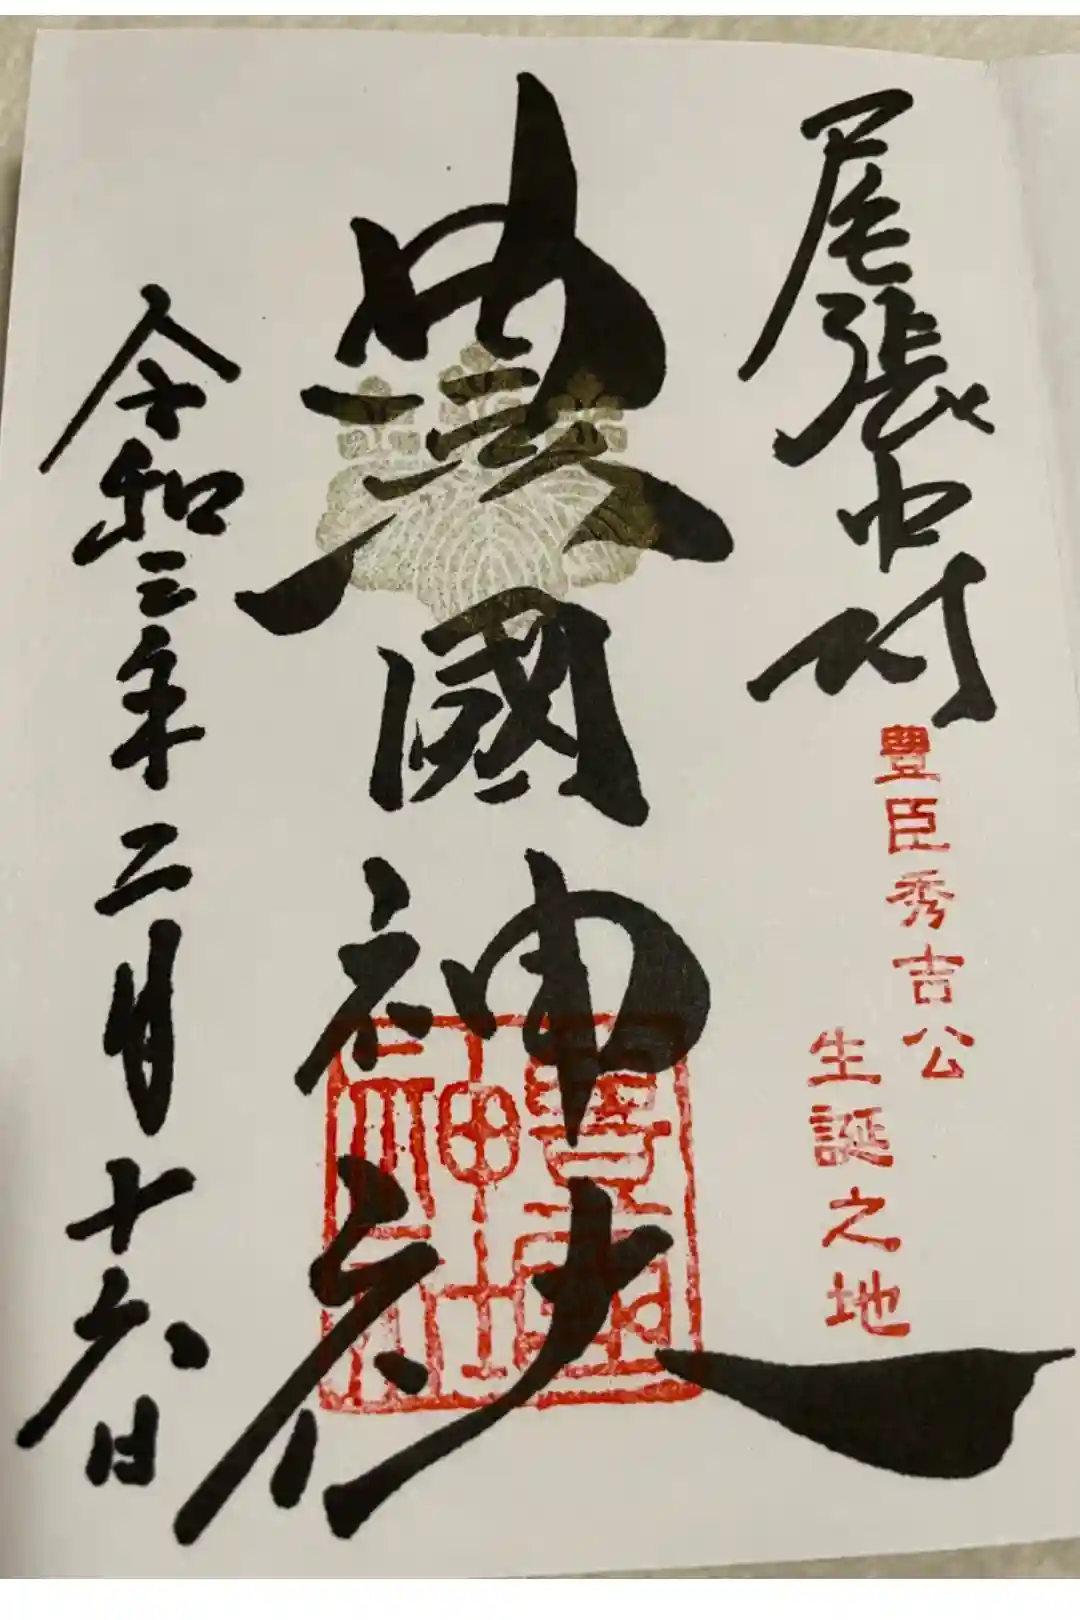 尾張中村
豊臣秀吉公
生誕之地
豊國神社
豊國
神社
令和三年二月十六日